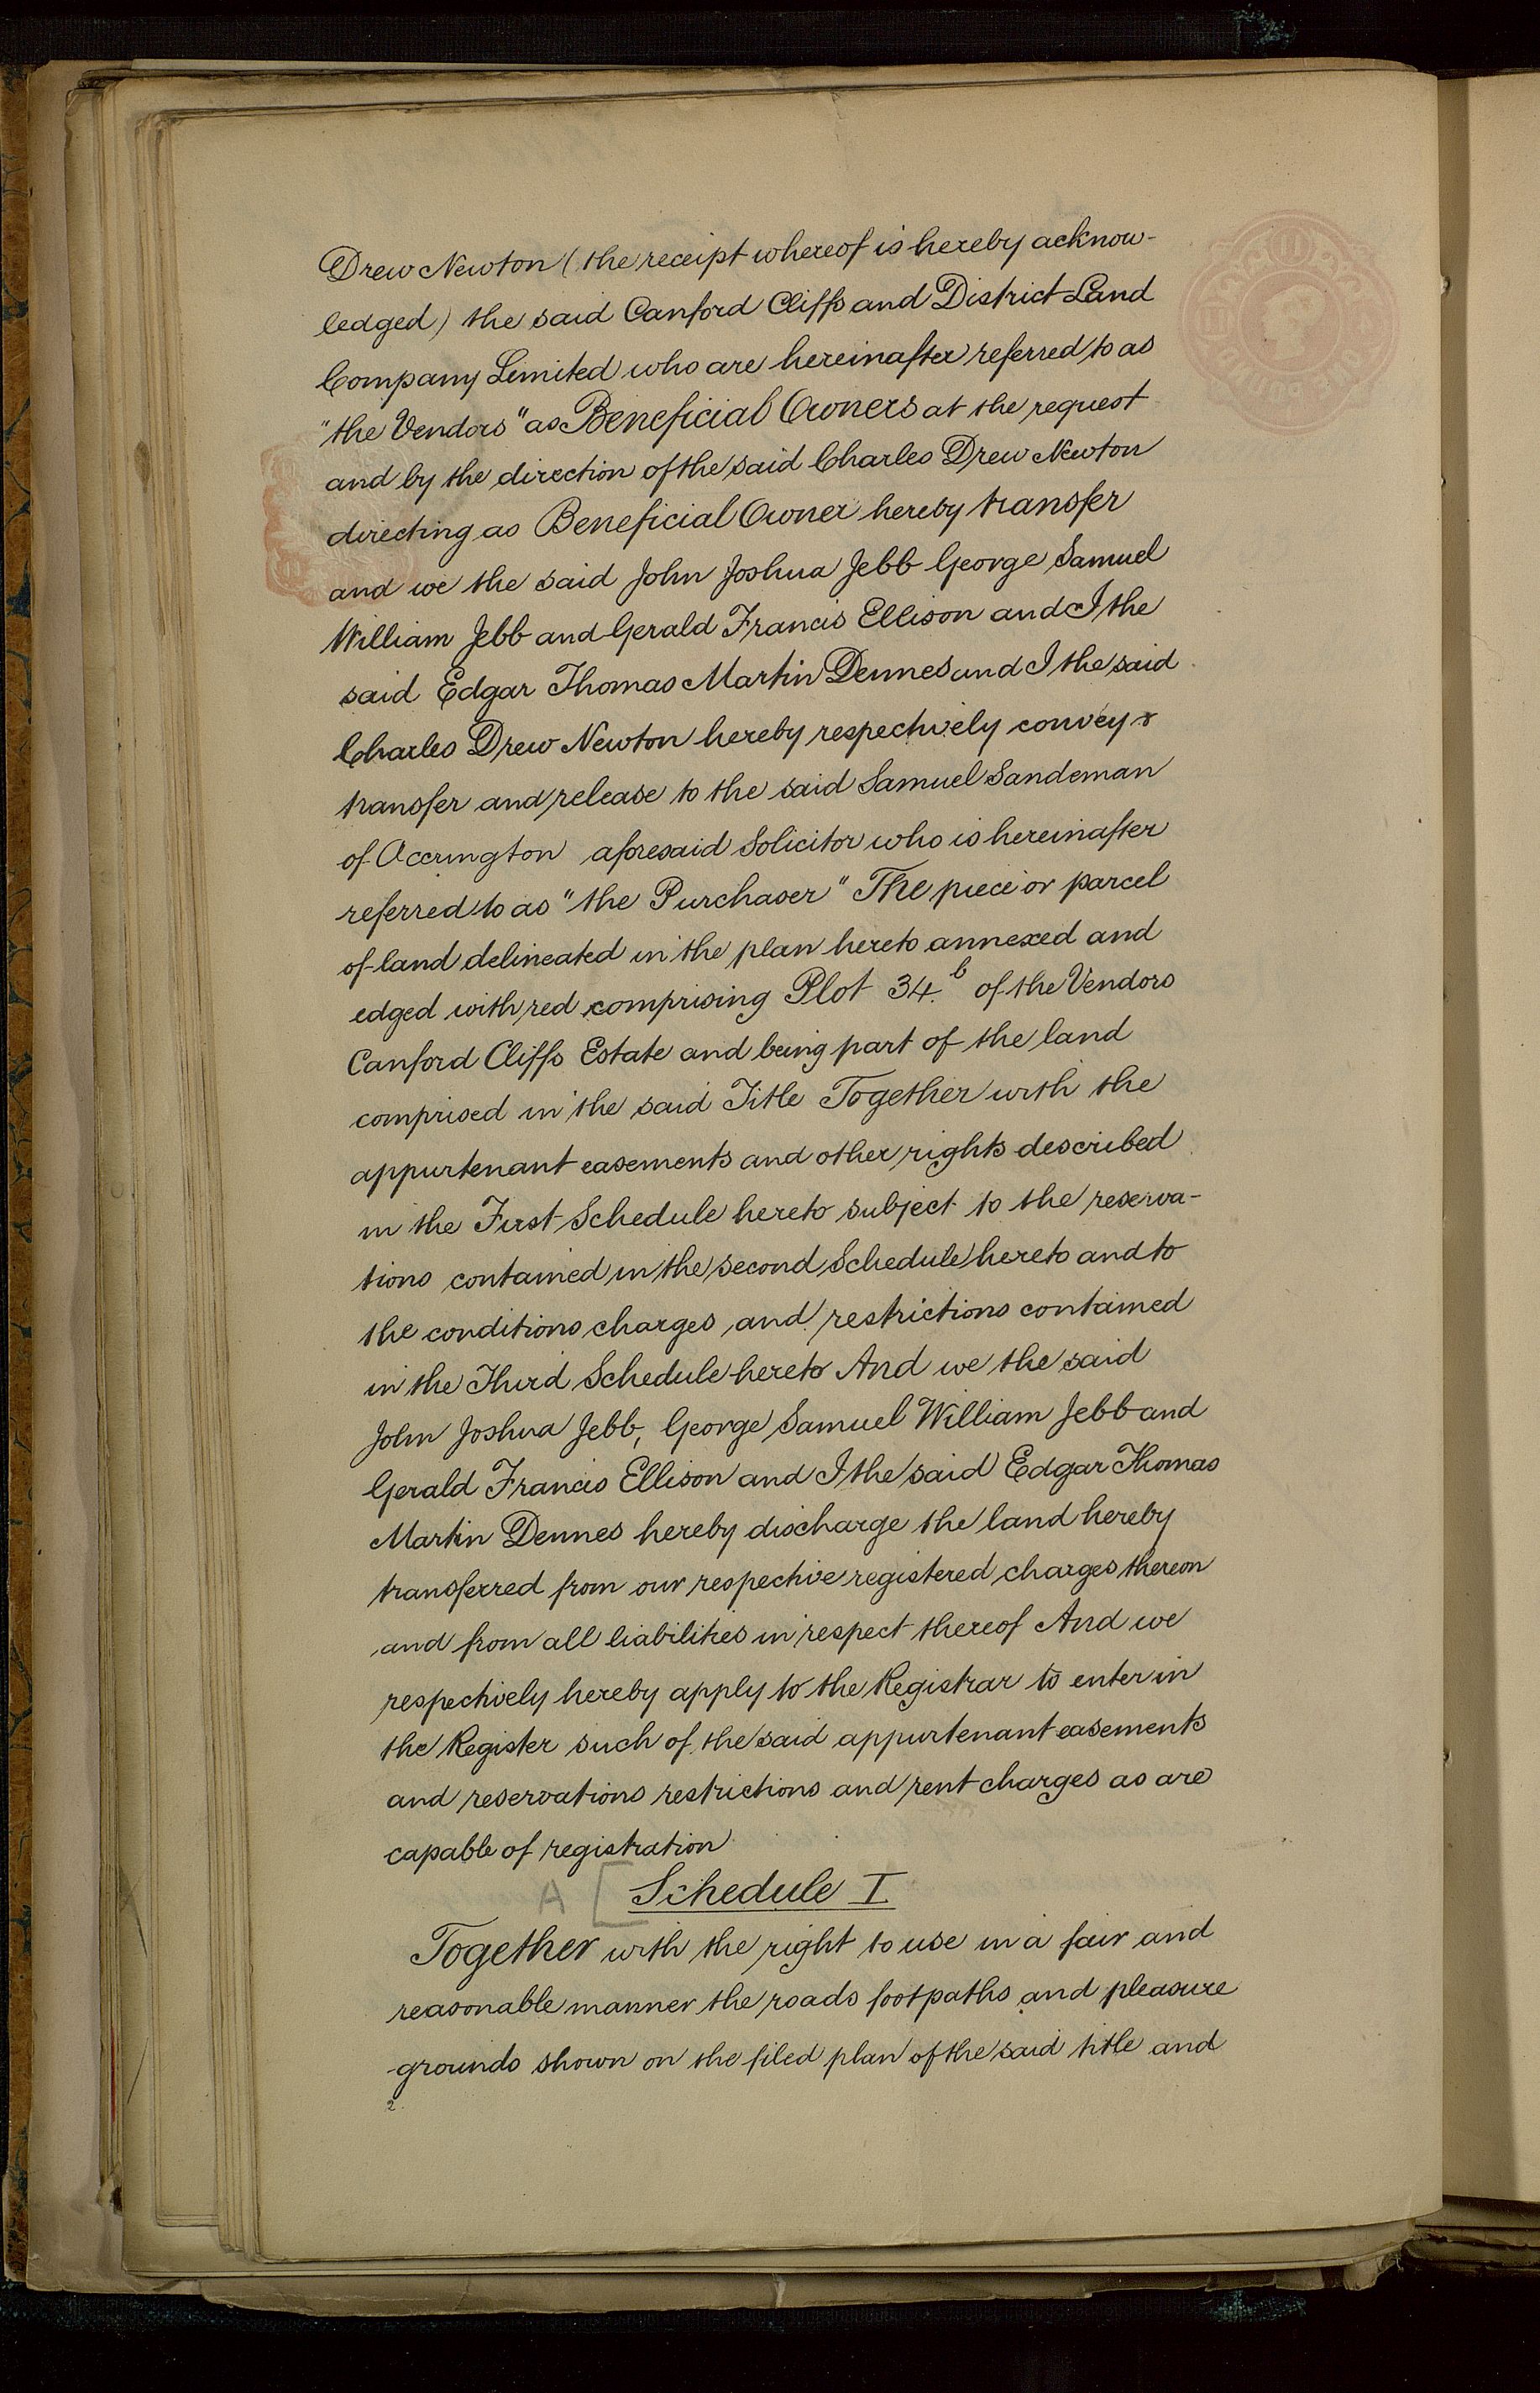 Drew Newton (the receipt whereof is hereby acknow-
ledged) the said Canford Cliffs and District Land
Company Limited who are hereinafter referred to as
"the Vendors" as Beneficial Owners at the request
and by the direction of the said Charles Drew Newton
directing as Beneficial Owner hereby transfer
and we the said John Joshua Jebb George Samuel
William Jebb and Gerald Francis Ellison and I the
said Edgar Thomas Martin Dennes and I the said
Charles Drew Newton hereby respectively convey &
transfer and release to the said Samuel Sandeman
of Accrington aforesaid Solicitor who is hereinafter
referred to as "the Purchaser" The piece or parcel
of land delineated in the plan hereto annexed and
edged with red comprising Plot 34.b of the Vendors
Canford Cliffs Estate and being part of the land
comprised in the said Title Together with the
appurtenant easements and other rights described
in the First Schedule hereto subject to the reserva-
tions contained in the second Schedule hereto and to
the conditions charges and restrictions contained
in the Third Schedule hereto And we the said
John Joshua Jebb, George Samuel William Jebb and
Gerald Francis Ellison and I the said Edgar Thomas
Martin Dennes hereby discharge the land hereby
transferred from our respective registered charges thereon
and from all liabilities in respect thereof And we
respectively hereby apply to the Registrar to enter in
the Register such of the said appurtenant easements
and reservations restrictions and rent charges as are
capable of registration
A [ Schedule I
Together with the right to use in a fair and
reasonable manner the roads footpaths and pleasure
grounds shown on the filed plan of the said title and
2.